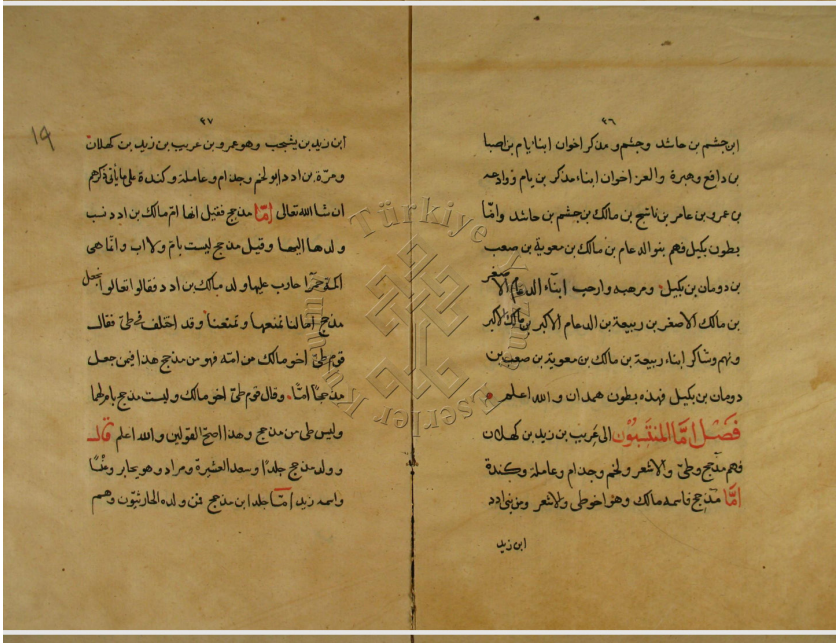 ٤٦
ابن جشم بن حاشد وجشم ومدكر اخوان ابناء يام بن اصبا
بن دافع وهبرة والغز اخوان ابناء مدكر بن يام ووادعه
بن عمرو بن عامر بن ناشج بن مالك بن جشم بن حاشد وامّا
بطون بكيل فهم بنو الدعام بن مالك بن معوية بن صعب
بن دومان بن بكيل ومرهبه وارحب ابناء الدعام الاصغر
بن مالك الاصغر بن ربيعة بن الدعام الاكبر بن مالك الاكبر
ونهم وشاكر ابناء ربيعة بن مالك بن معوية بن صعب بن
دومان بن بكيل فهذه بطون همدان والله اعلم
فصل امّا المنتسبون الى عريب بن زيد بن كهلان
فهم مذحج وطىّ والاشعر ولخم وجدام وعاملة وكندة
امّا مذحج فاسمه مالك وهو اخو طى والاشعر ومن بنى ادد
ابن زيد
٤٧
19
ابن زيد بن يشجب وهو عمرو بن عريب بن زيد بن كهلان
ومرّة بن ادد ابو لخم وجدام وعاملة وكندة على ما يأتى ذكرهم
ان شا الله تعالى امّا مذحج فقيل انها امّ مالك بن ادد نسب
ولدها اليها وقيل مذحج ليست بامّ ولا اب وانّما هى
اكمة حمرآ حارب عليها ولد مالك بن ادد فقالوا تعالوا نجعل
مذحج امّا لنا نمنعها وتمنعنا وقد اختلف فى طىّ فقال
قوم طىّ اخو مالك من امّه فهو من مذحج هذا فيمن جعل
مذحجًا امًّا وقال قوم طىّ اخو مالك وليست مذحج بام لهما
وليس طى من مذحج وهذا اصحّ القولين والله اعلم قال
وولد مذحج جلدًا وسعد العشيرة ومراد وهو يحابر وعنسًا
واسمه زيد امّا جلد ابن مذحج فمن ولده الحارثيّون وهم
Türkiye Yazma Eserler Kurumu